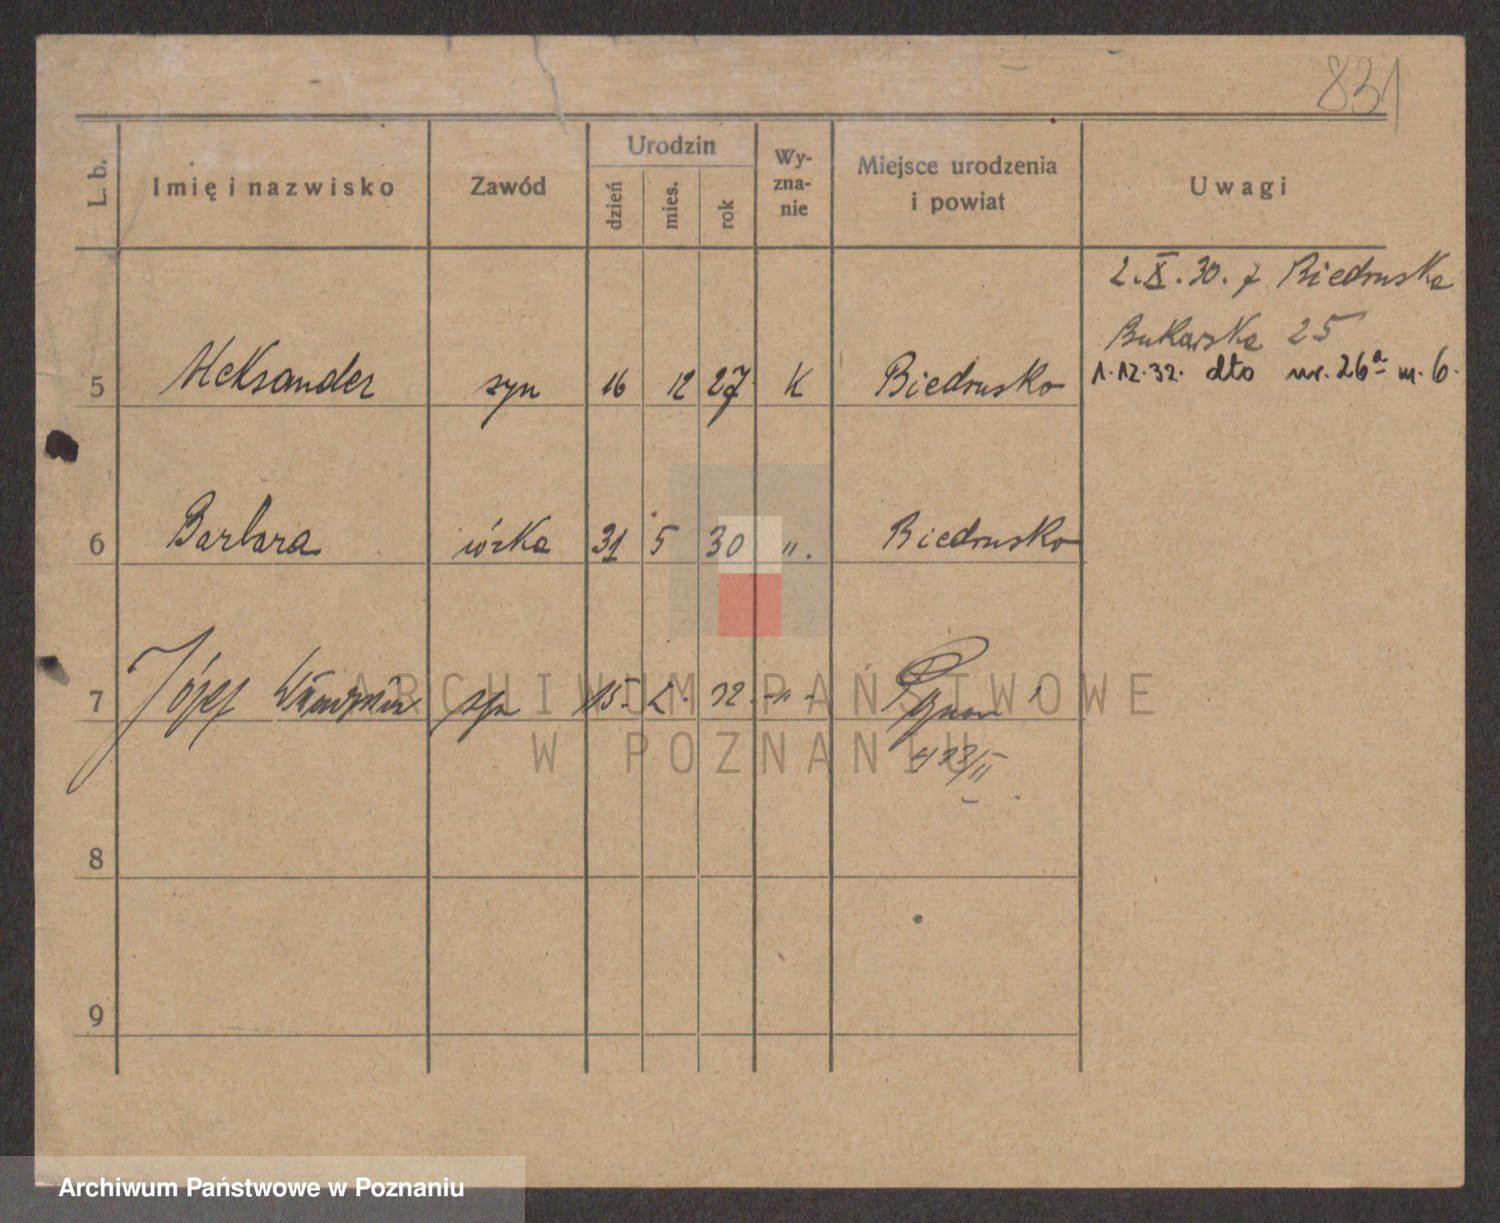 831
L. b. Imię i nazwisko Zawód Urodzin dzień mies. rok Wy-zna-nie Miejsce urodzenia i powiat Uwagi
2.X.30. z Biedruska
Bukarska 25
1.12.32. dto nr. 26a m. 6.
5 Aleksander syn 16 12 27 K Biedrusko
6 Barbara córka 31 5 30 ". Biedrusko
7 Józef syn 15. 2. 32. -"- Poznań
8
9
ARCHIWUM PAŃSTWOWE
W POZNANIU
Archiwum Państwowe w Poznaniu